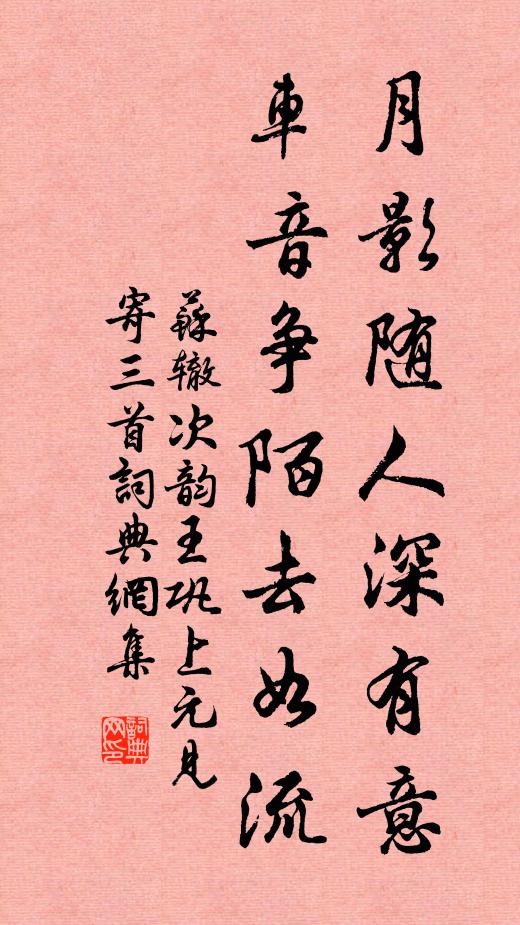 月影随人深有意
車音争陌去如流
蘇辙次韵王巩上元見
寄三首詞典網集
詞典
网印